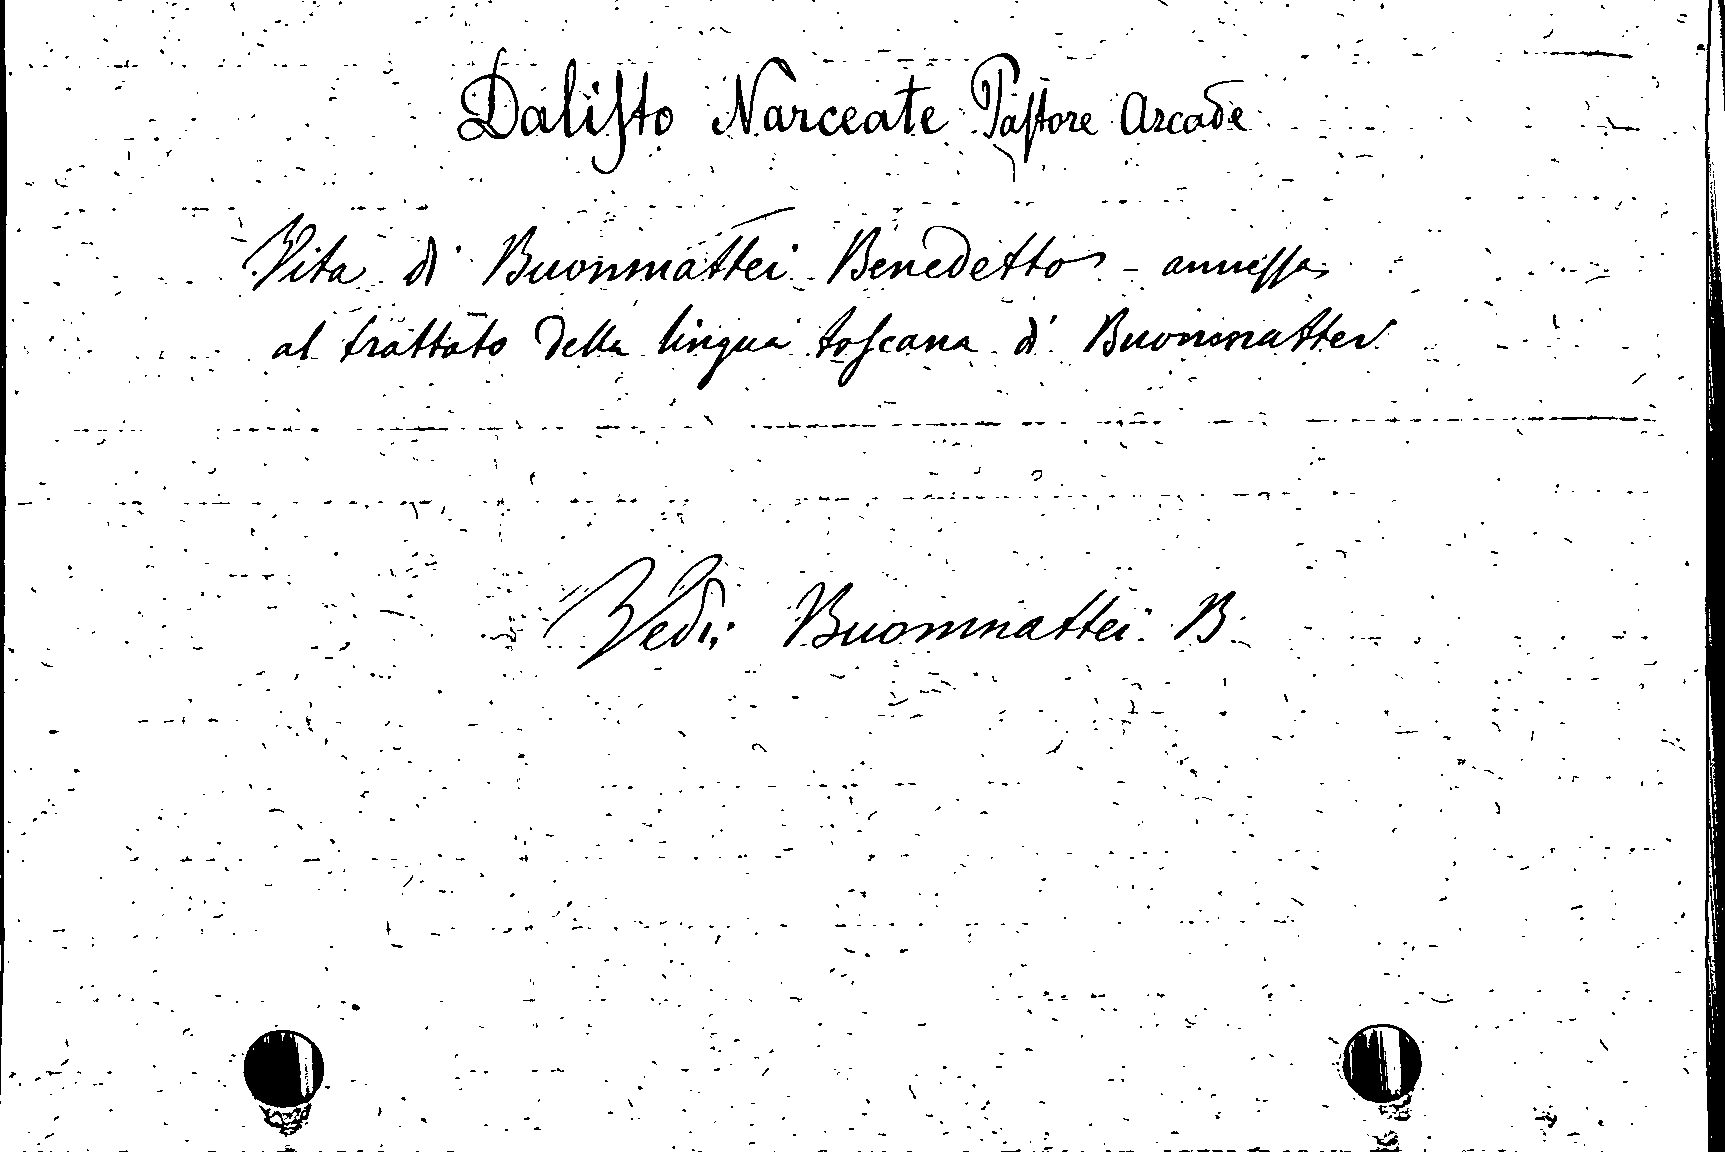 Dalisto Narceate Pastore Arcade
Vita di Buonmattei Benedetto - annessa
al trattato della lingua toscana di Buonmattei
Vedi: Buommattei B.